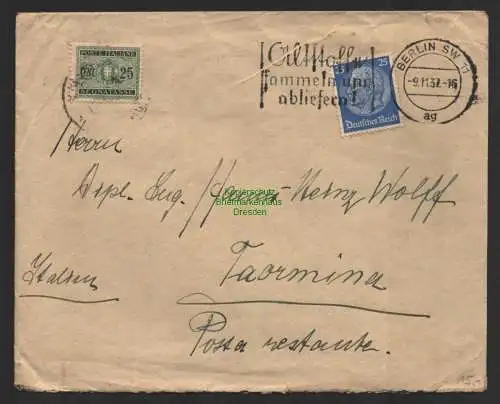 POSTE ITALIANE
25
SEGNATASSE
Altmetall
sammeln und
abliefern!
25
Deutsches Reich
BERLIN SW 11
-9.11.37.-16
ag
Herrn
Dipl. Ing. Hans-Heinz Wolff
Kopierschutz
Briefmarkenhaus
Dresden
Italien
Taormina
Posta restante.
15.-